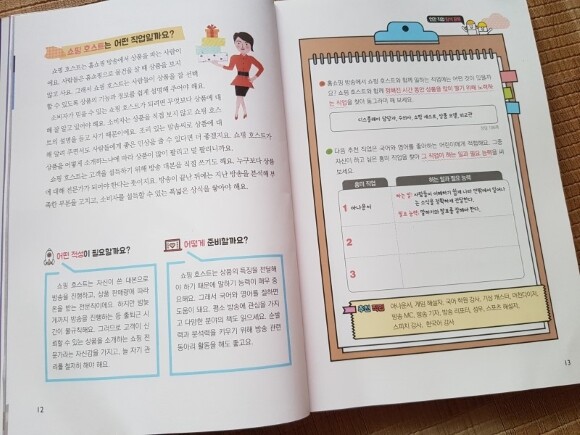 쇼핑 호스트는 어떤 직업일까요?
쇼핑 호스트는 홈쇼핑 방송에서 상품을 파는 사람이
에요. 사람들은 홈쇼핑으로 물건을 살 때 상품을 보지
않고 사요. 그래서 쇼핑 호스트는 사람들이 상품을 잘 선택
할 수 있도록 상품의 기능과 정보를 쉽게 설명해 주어야 해요.
소비자가 믿을 수 있는 쇼핑 호스트가 되려면 무엇보다 상품에 대
해 잘 알고 있어야 해요. 소비자는 상품을 직접 보지 않고 쇼핑 호스
트의 설명을 듣고 사기 때문이에요. 조리 있는 말솜씨로 상품에 대
해 알려 주면서도 사람들에게 좋은 인상을 줄 수 있다면 더 좋겠지요. 쇼핑 호스트가
상품을 어떻게 소개하느냐에 따라 상품이 많이 팔리고 덜 팔리니까요.
쇼핑 호스트는 고객을 설득하기 위해 방송 대본을 직접 쓰기도 해요. 누구보다 상품
에 대해 전문가가 되어야 한다는 뜻이지요. 방송이 끝난 뒤에는 지난 방송을 분석해 부
족한 부분을 고치고, 소비자를 설득할 수 있는 폭넓은 상식을 쌓아야 해요.
어떤 적성이 필요할까요?
쇼핑 호스트는 자신이 쓴 대본으로
방송을 진행하고, 상품 판매량에 따라
돈을 받는 전문직이에요. 하지만 밤늦
게까지 방송을 진행하는 등 출퇴근 시
간이 불규칙해요. 그러므로 고객이 신
뢰할 수 있는 상품을 소개하는 쇼핑 전
문가라는 자신감을 가지고, 늘 자기 관
리를 철저히 해야 해요.
어떻게 준비할까요?
쇼핑 호스트는 상품의 특징을 전달해
야 하기 때문에 말하기 능력이 매우 중
요해요. 그래서 국어와 영어를 잘하면
도움이 돼요. 평소 방송에 관심을 가지
고 다양한 분야의 책도 읽으세요. 순발
력과 분석력을 키우기 위해 방송 관련
동아리 활동을 해도 좋고요.
12
홈쇼핑 방송에서 쇼핑 호스트와 함께 일하는 직업에는 어떤 것이 있을까
요? 쇼핑 호스트와 함께 정해진 시간 동안 상품을 많이 팔기 위해 노력하
는 직업을 찾아 동그라미 해 보세요.
다음 추천 직업은 국어와 영어를 좋아하는 어린이에게 적합해요. 그중
자신이 하고 싶은 꿈의 직업을 찾아 그 직업이 하는 일과 필요 능력을 써
보세요.
꿈의 직업
하는 일과 필요 능력
1 아나운서
하는 일: 사람들이 이해하기 쉽게 나라 안팎에서 일어나
는 소식을 정확하게 전달한다.
필요 능력: 말하기와 발표를 잘해야 한다.
2
3
추천 직업
아나운서, 게임 해설자, 국어 학원 강사, 기상 캐스터, 여행가이드,
방송 MC, 방송 기자, 방송 리포터, 성우, 스포츠 해설자,
스피치 강사, 한국어 강사
13